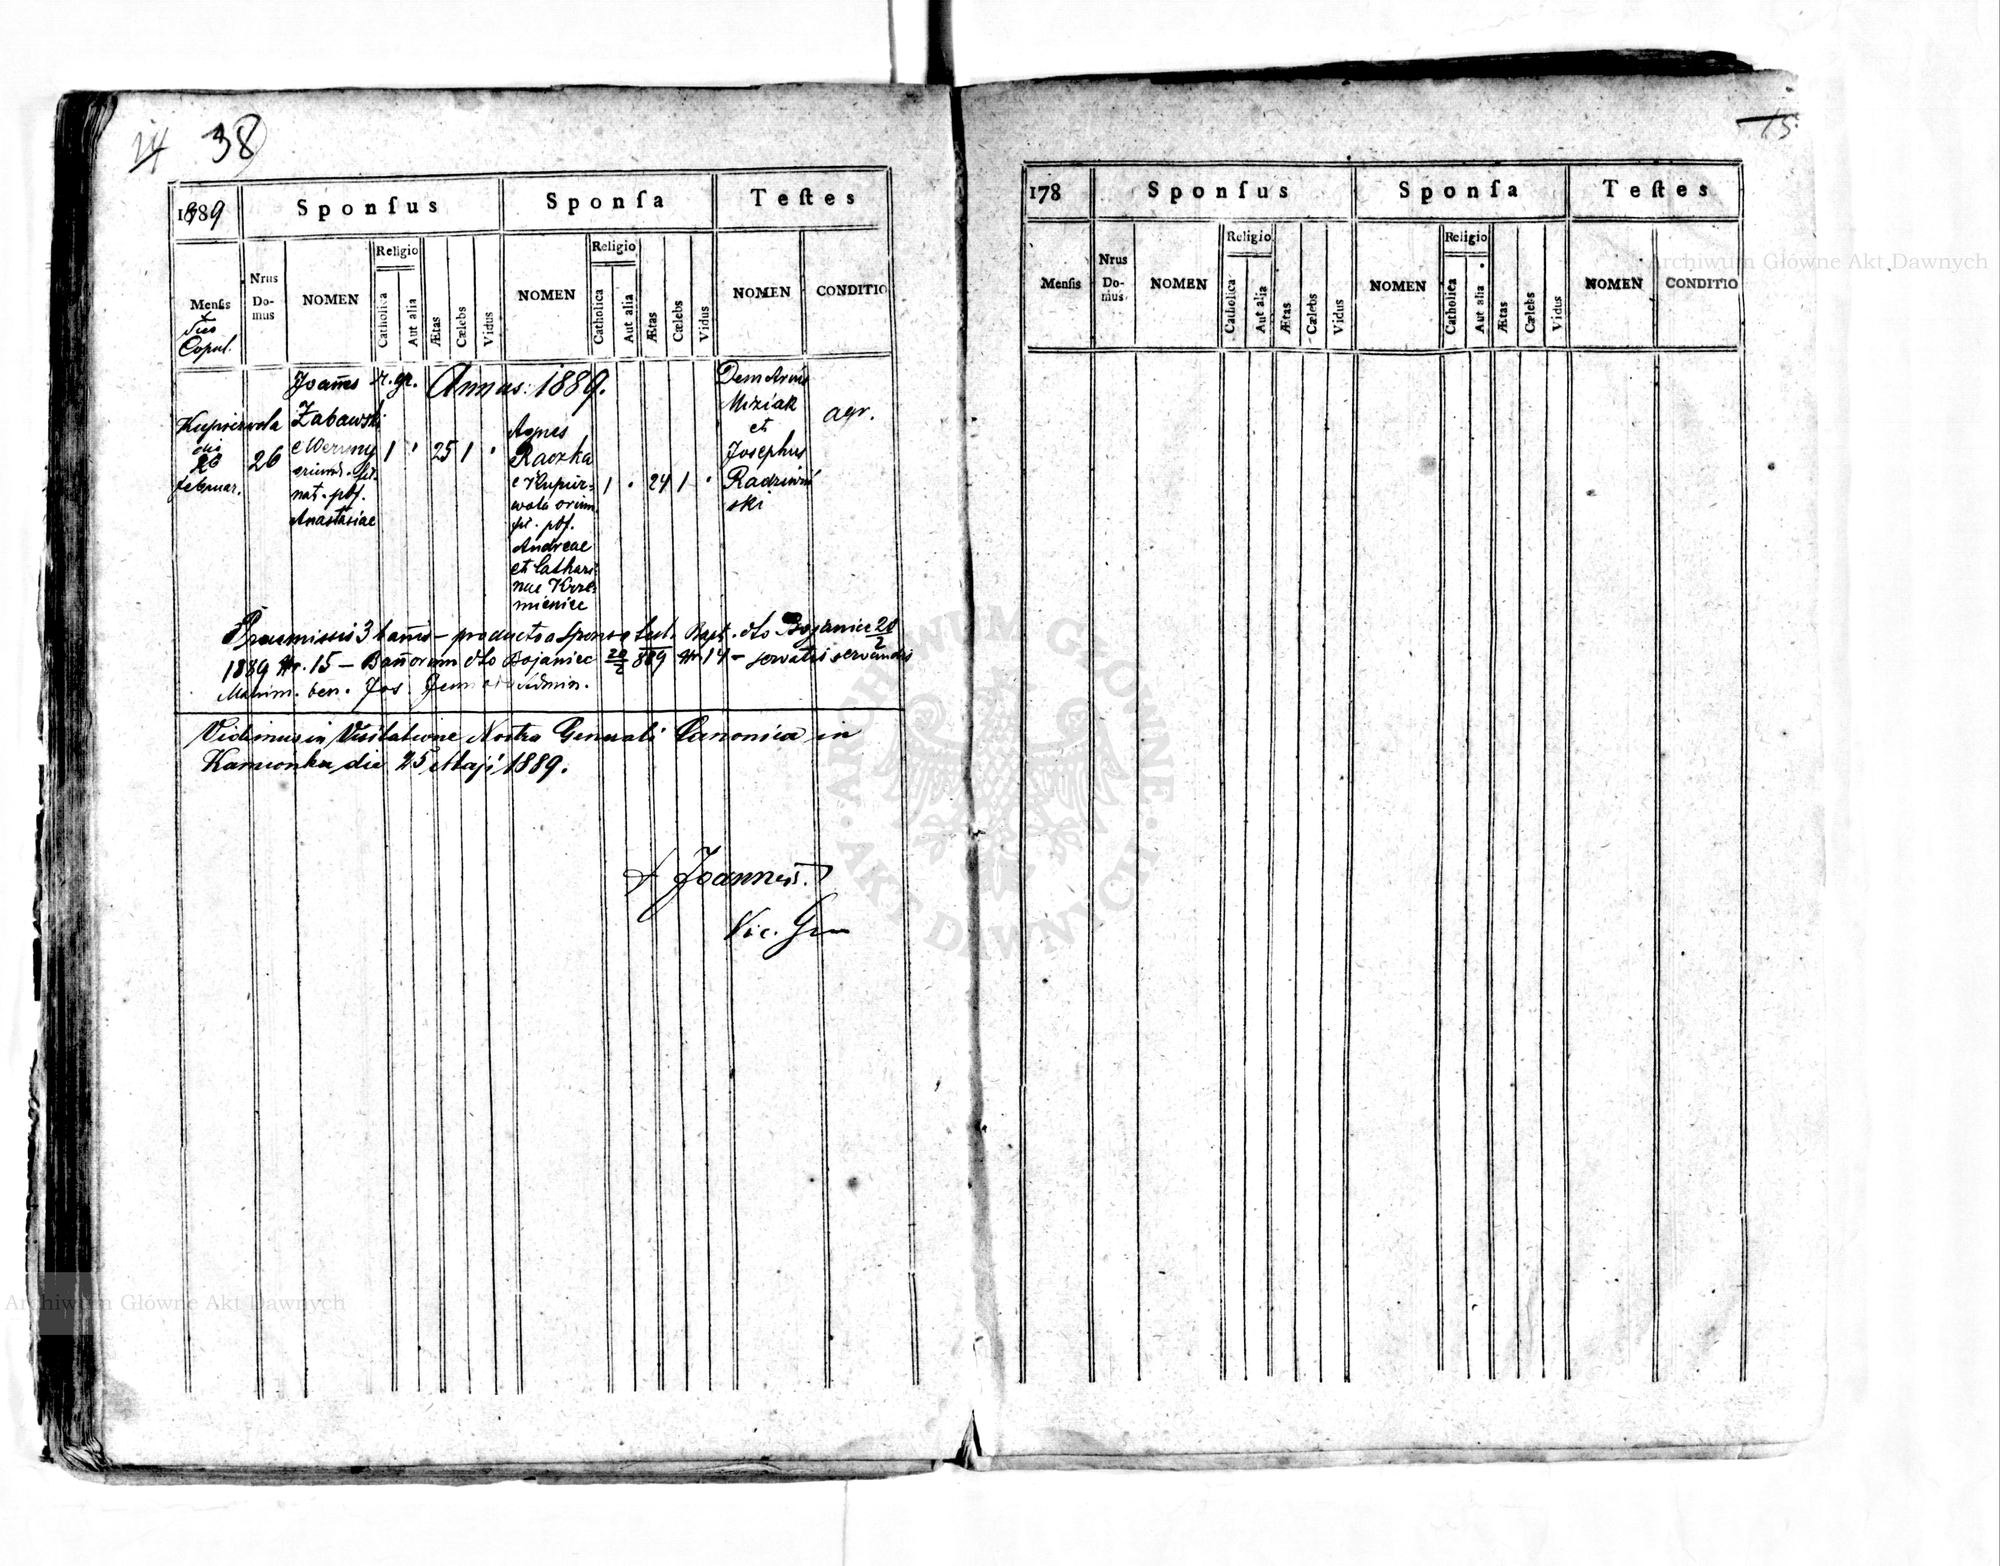 14 38
1889 Sponſus Sponſa Teſtes
Menſis
Dies
Copul.
Nrus
Do-
mus
NOMEN
Religio
Catholica
Aut alia
Ætas
Cælebs
Vidus
NOMEN
Religio
Catholica
Aut alia
Ætas
Cælebs
Vidus
NOMEN
CONDITIO
Annus: 1889.
26
februar.
26
Joañes r. gr.
Żabawski
nat. pbf.
Anastasiae
1 25 1
Agnes
Raczka
e Kupicz=
wola orium
fil. pbf.
Andreae
et Cathari=
nae Krze=
mieniec
1 24 1
Miziak
et
Josephus
ski
agr.
Praemissis 3 bañis – producto a sponso test. Bapt. dto Bojaniec 20/2
1889 Nr. 15 – Bañorum dto Bojaniec 20/2 889 Nr 14 – servatis servandis
Matrim. ben. Jos. Admin.
Vidimus in Visitatione Nostra Generali Canonica in
Kamionka die 25 Maji 1889.
† Joannes
Vic. Gen
15
178 Sponſus Sponſa Teſtes
Menſis
Nrus
Do-
mus
NOMEN
Religio
Catholica
Aut alia
Ætas
Cælebs
Vidus
NOMEN
Religio
Catholica
Aut alia
Ætas
Cælebs
Vidus
NOMEN
CONDITIO
Archiwum Główne Akt Dawnych
ARCHIWUM GŁÓWNE · AKT DAWNYCH ·
Archiwum Główne Akt Dawnych